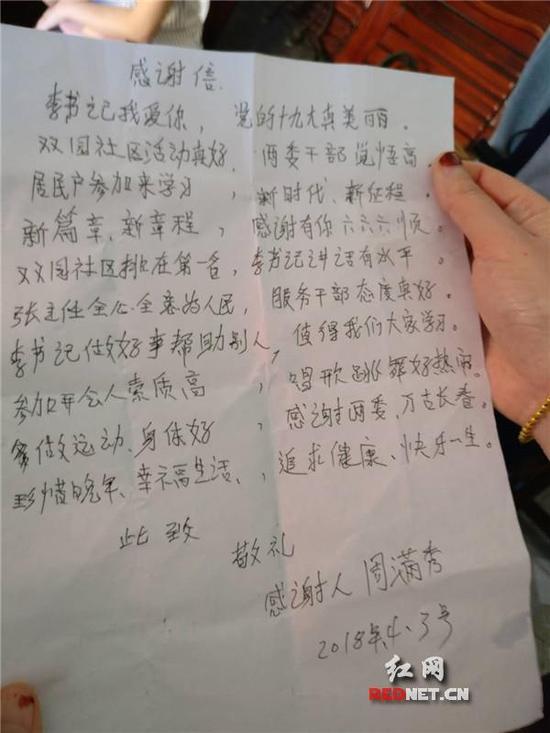 感谢信.
李书记我爱你，党的十九大真美丽．
双园社区活动真好．两委干部觉悟高．
居民户参加来学习，新时代、新征程．
新篇章、新章程，感谢有你六六六顺。
双园社区排在第一名，李书记讲话有水平．
张主任全心全意为人民，服务干部态度真好．
李书记做好事帮助别人，值得我们大家学习．
参加开会人素质高，唱歌跳舞好热闹。
多做运动、身体好，感谢两委，万古长春。
珍惜晚年、幸福生活、，追求健康、快乐一生。
此致
敬礼
感谢人 周满秀
2018年4、3号
红网
REDNET.CN